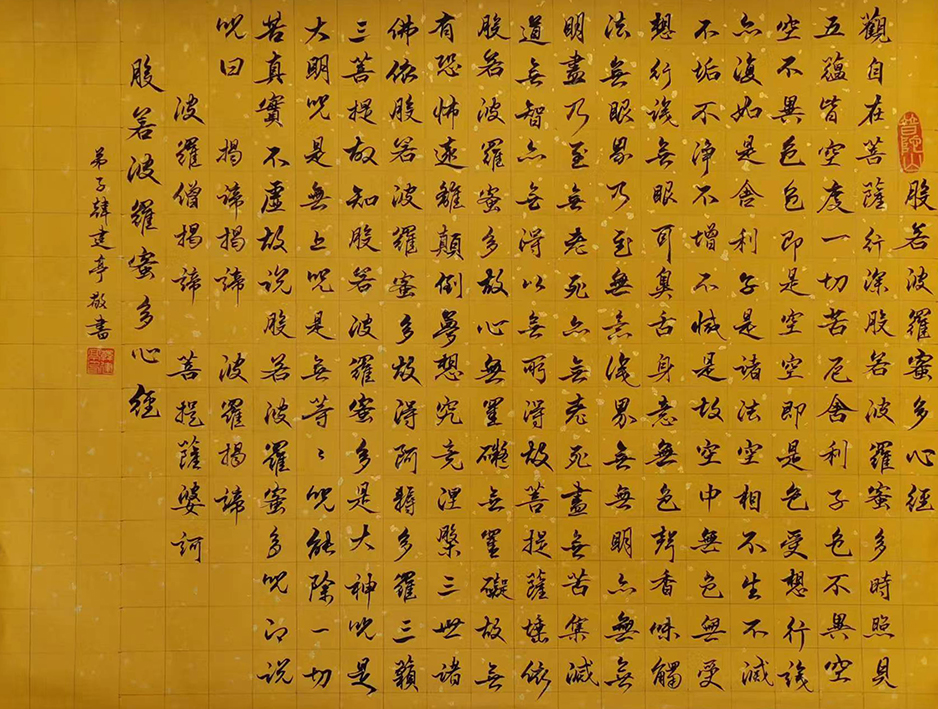 普陀山
般若波羅蜜多心經
觀自在菩薩行深般若波羅蜜多時照見
五蘊皆空度一切苦厄舍利子色不異空
空不異色色即是空空即是色受想行識
亦復如是舍利子是諸法空相不生不滅
不垢不淨不增不減是故空中無色無受
想行識無眼耳鼻舌身意無色聲香味觸
法無眼界乃至無意識界無無明亦無無
明盡乃至無老死亦無老死盡無苦集滅
道無智亦無得以無所得故菩提薩埵依
般若波羅蜜多故心無罣礙無罣礙故無
有恐怖遠離顛倒夢想究竟涅槃三世諸
佛依般若波羅蜜多故得阿耨多羅三藐
三菩提故知般若波羅蜜多是大神咒是
大明咒是無上咒是無等〻咒能除一切
苦真實不虛故說般若波羅蜜多咒即說
咒曰 揭諦揭諦 波羅揭諦
波羅僧揭諦 菩提薩婆訶
般若波羅蜜多心經
弟子韓建亭敬書